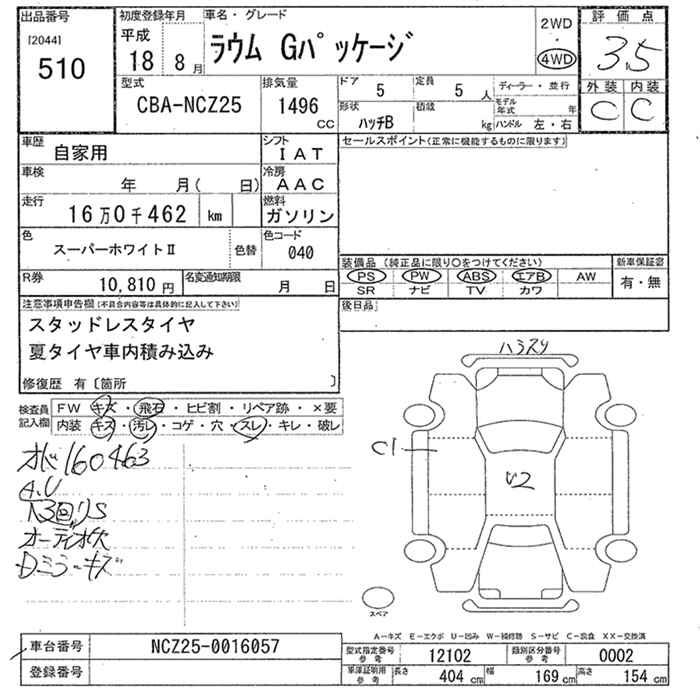 出品番号
[2044]
510
初度登録年月
平成
18 8 月
車名・グレード
ラウム Gパッケージ
2WD
4WD
評価点
3.5
外装 内装
C C
型式
CBA-NCZ25
排気量
1496
CC
ドア
5
定員
5 人
ディーラー・並行
モデル
年式 年
形状
ハッチB
積載
kg
ハンドル 左・右
車歴
自家用
シフト
IAT
セールスポイント(正常に機能するものに限ります)
車検
年 月( 日)
冷房
AAC
走行
16万0千462 km
燃料
ガソリン
色
スーパーホワイトⅡ
色替
色コード
040
装備品 (純正品に限り〇をつけてください)
新車保証書
PS PW ABS エアB AW
SR ナビ TV カワ
有・無
R券
10,810 円
名変通知期限
月 日
後日品
注意事項申告欄 [不具合内容等は具体的に記入して下さい]
スタッドレスタイヤ
夏タイヤ車内積み込み
修復歴 有 [箇所 ]
検査員
記入欄
FW キズ・飛石・ヒビ割・リペア跡・×要
内装 キズ・汚レ・コゲ・穴・スレ・キレ・破レ
オド160463
A.U
オーディオ欠
Dミラーキズ
C1
U2
スペア
A-キズ E-エクボ U-凹み W-補修跡 S-サビ C-腐食 XX-交換済
車台番号
NCZ25-0016057
登録番号
型式指定番号
参考
12102
類別区分番号
参考
0002
車庫証明用
参考
長さ
404 cm
幅
169 cm
高さ
154 cm